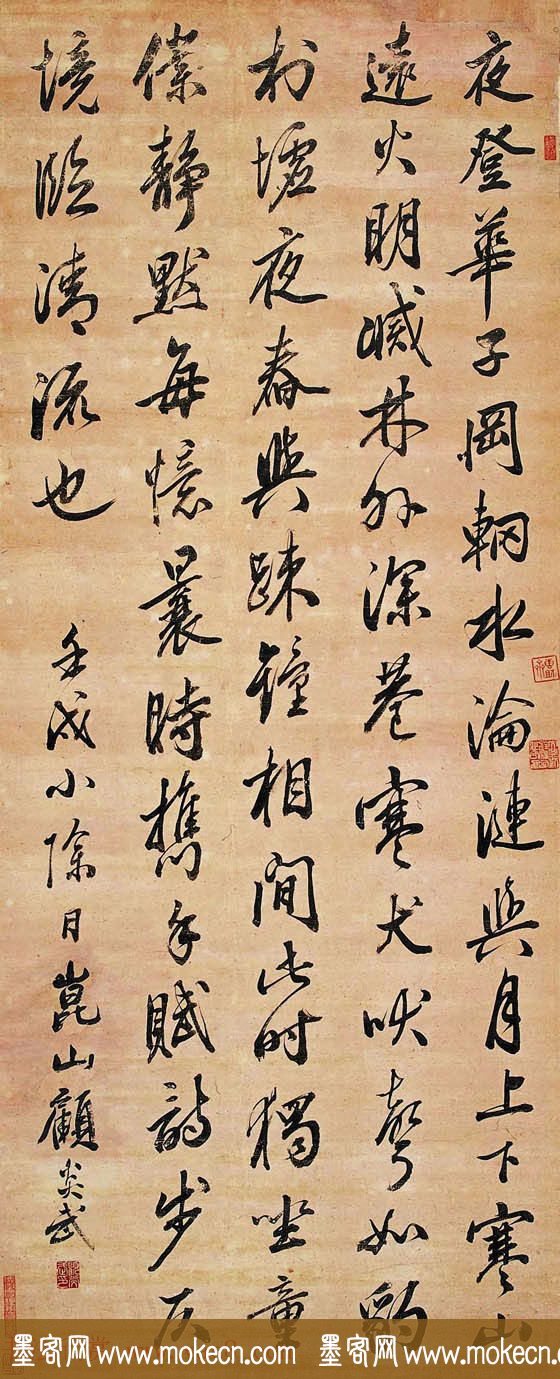 夜登華子岡輞水淪漣與月上下寒山
遠火明滅林外深巷寒犬吠聲如豹
村墟夜舂與疎鐘相間此時獨坐童
僕靜默每憶曩時攜手賦詩步仄
境臨清流也
壬戌小除日崑山顧炎武
墨客网 www.mokecn.com 墨客网 www.mokecn.com